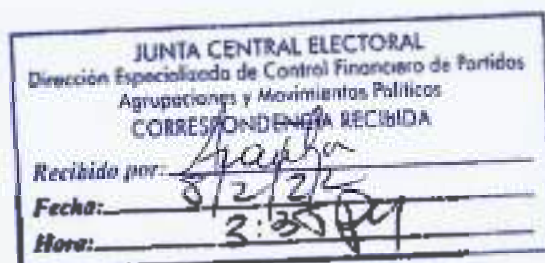 JUNTA CENTRAL ELECTORAL
Dirección Especializada de Control Financiero de Partidos
Agrupaciones y Movimientos Políticos
CORRESPONDENCIA RECIBIDA
Recibido por:
Fecha:
Hora: 3:35